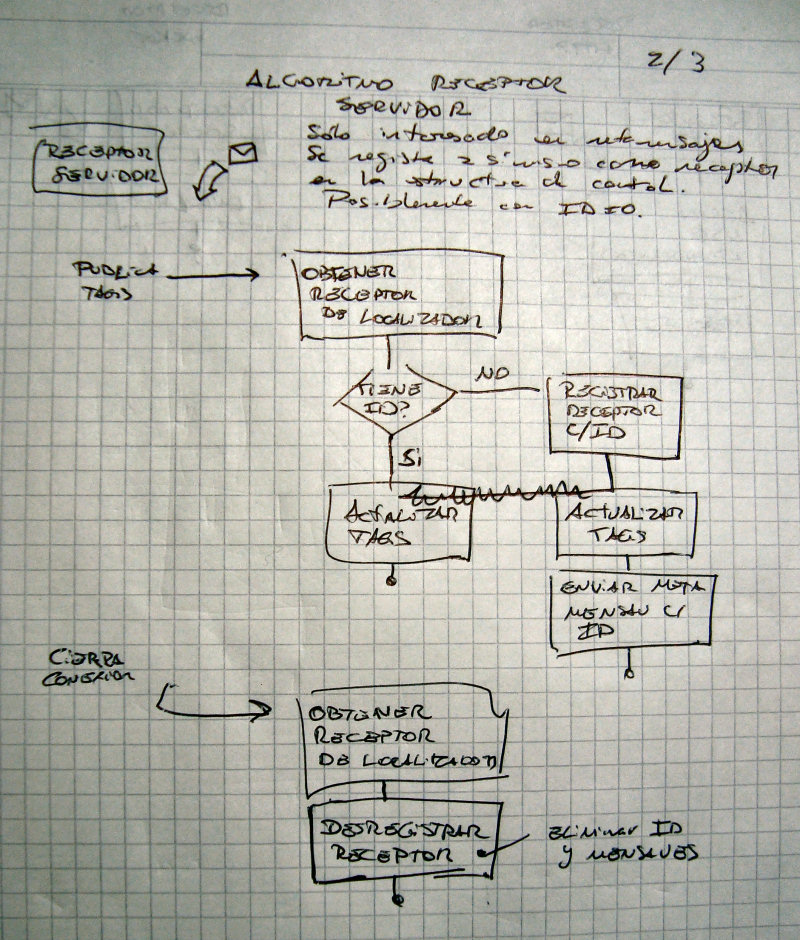 2/3
ALGORITMO RECEPTOR
SERVIDOR
RECEPTOR
SERVIDOR
Sólo interesado en metamensajes
Se registra a si mismo como receptor
en la estructura de control.
Posiblemente con ID=0.
PUBLICA
TAGS
OBTENER
RECEPTOR
DE LOCALIZADOR
TIENE
ID?
NO
REGISTRAR
RECEPTOR
C/ID
Si
ACTUALIZAR
TAGS
ACTUALIZAR
TAGS
ENVIAR META
MENSAJE C/
ID
CIERRA
CONEXION
OBTENER
RECEPTOR
DE LOCALIZADOR
DESREGISTRAR
RECEPTOR
ELIMINAR ID
Y MENSAJES